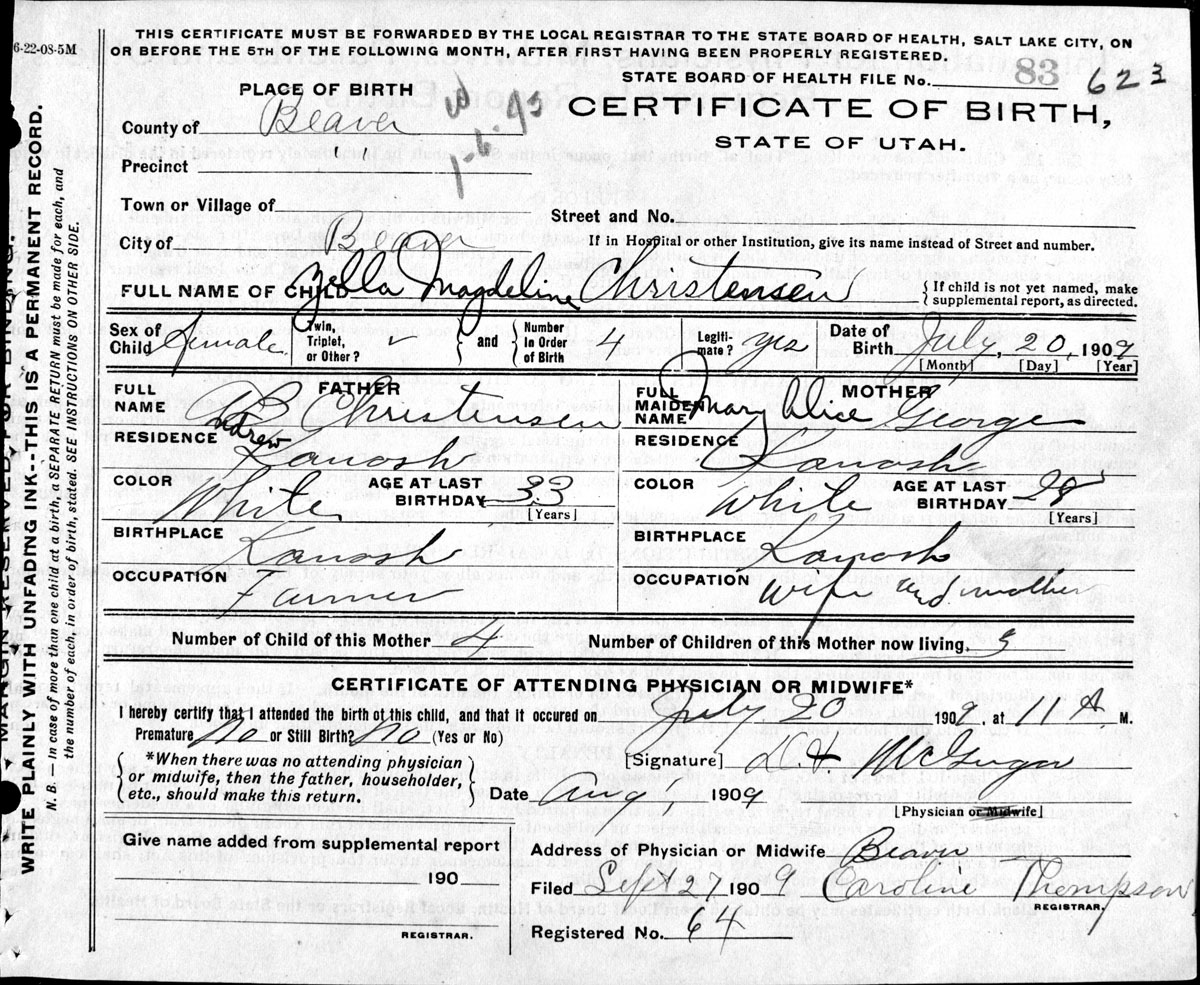 6-22-08-5M
THIS CERTIFICATE MUST BE FORWARDED BY THE LOCAL REGISTRAR TO THE STATE BOARD OF HEALTH, SALT LAKE CITY, ON
OR BEFORE THE 5TH OF THE FOLLOWING MONTH, AFTER FIRST HAVING BEEN PROPERLY REGISTERED.
STATE BOARD OF HEALTH FILE No. 83 623
PLACE OF BIRTH
CERTIFICATE OF BIRTH,
STATE OF UTAH.
County of Beaver
Precinct " "
Town or Village of
Street and No.
City of Beaver
If in Hospital or other Institution, give its name instead of Street and number.
FULL NAME OF CHILD Zella Magdeline Christensen { If child is not yet named, make supplemental report, as directed.
Sex of Child Female Twin, Triplet, or Other? and Number in Order of Birth 4 Legiti-mate? yes Date of Birth July, 20, 1909
[Month] [Day] [Year]
FATHER
FULL NAME Andrew B Christensen
RESIDENCE Kanosh
COLOR White AGE AT LAST BIRTHDAY 33 [Years]
BIRTHPLACE Kanosh
OCCUPATION Farmer
MOTHER
FULL MAIDEN NAME Mary Alice George
RESIDENCE Kanosh
COLOR White AGE AT LAST BIRTHDAY [Years]
BIRTHPLACE Kanosh
OCCUPATION Wife and mother
Number of Child of this Mother 4 Number of Children of this Mother now living, 5
CERTIFICATE OF ATTENDING PHYSICIAN OR MIDWIFE*
I hereby certify that I attended the birth of this child, and that it occured on July 20 1909, at 11 A. M.
Premature No or Still Birth? No (Yes or No)
*When there was no attending physician
or midwife, then the father, householder,
etc., should make this return.
[Signature] McGugar
Date Aug 1, 1909
[Physician or Midwife]
Give name added from supplemental report
190
REGISTRAR.
Address of Physician or Midwife Beaver
Filed Sept 27 1909 Caroline Thompson
REGISTRAR.
Registered No. 64
MARGIN RESERVED FOR BINDING.
WRITE PLAINLY WITH UNFADING INK--THIS IS A PERMANENT RECORD.
N. B. — In case of more than one child at a birth a SEPARATE RETURN must be made for each, and
the number of each, in order of birth, stated. SEE INSTRUCTIONS ON OTHER SIDE.